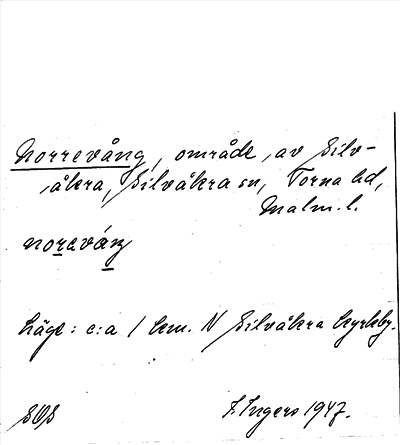 Norrevång, område, av Silv-
åkra, Silvåkra sn, Torna hd,
Malm. l.
noreváŋ
Läge: c:a 1 km. N Silvåkra kyrkby.
SOS
I. Ingers 1947.